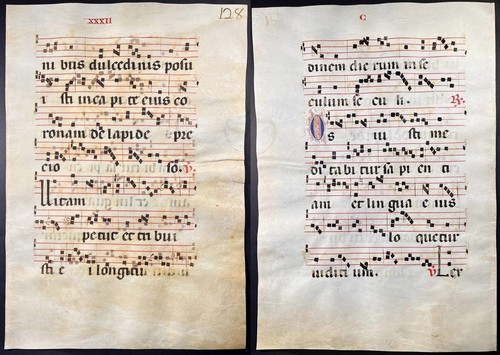 XXXII
128
ni bus dulcedinis posu
i sti in ca pi te eius co
ronam de lapide pre
cio so. V.
Uitam
petiit et tri bui
sti e i longitu
C
dinem die rum in se
culum se cu li. R.
O s iu sti me
di ta bi tur sa pi en ti
am et lingua e ius
lo quetur
iudici um. V Lex